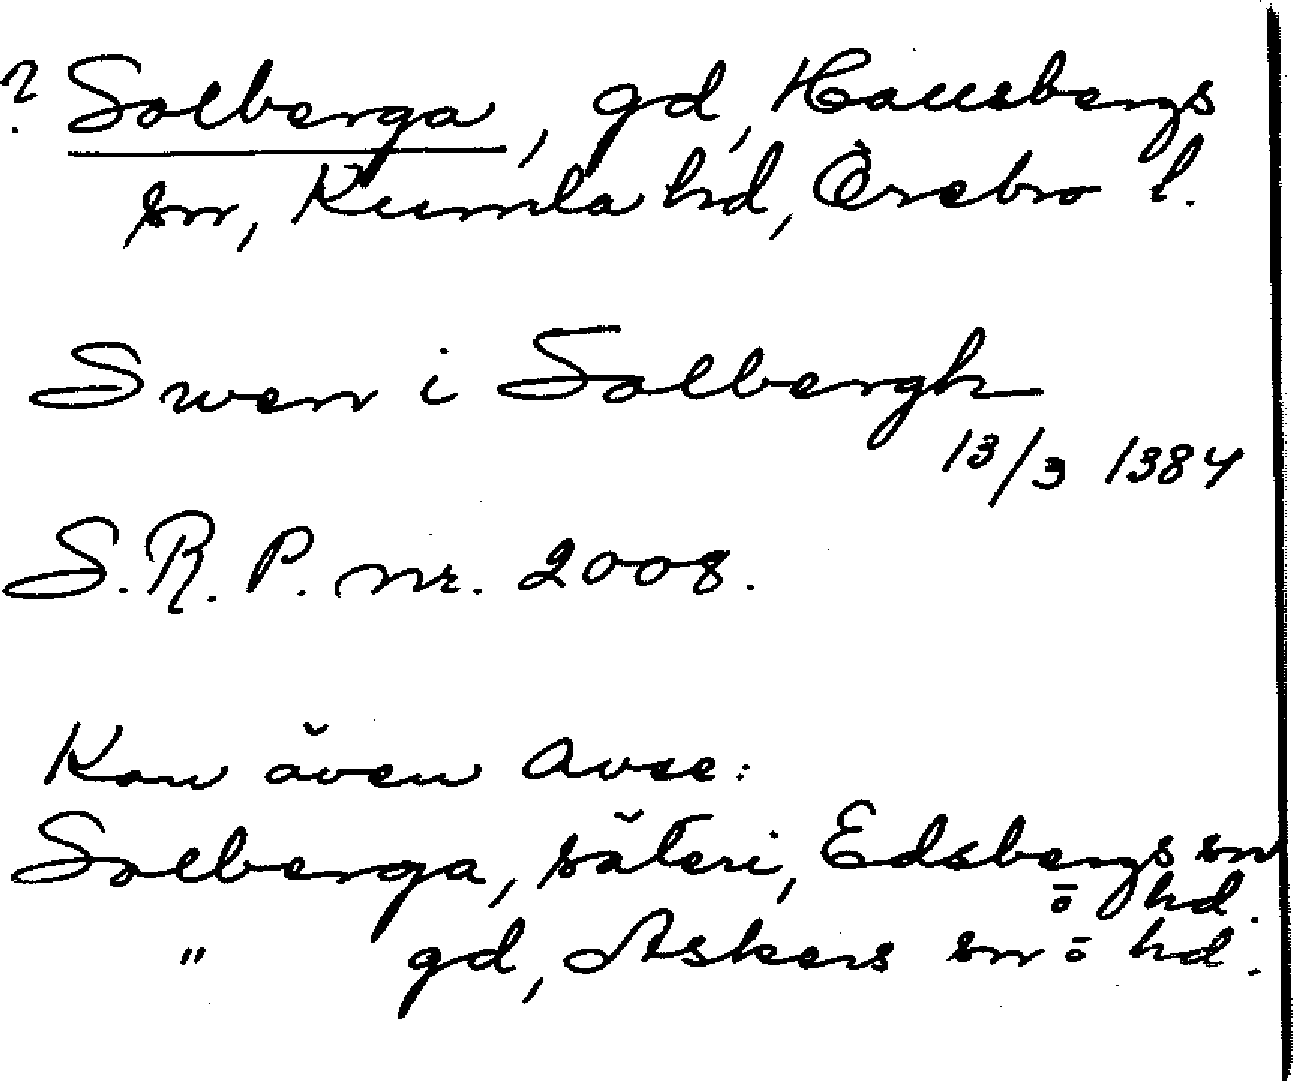 ? Solberga, gd, Hallsbergs
sn, Kumla hd, Örebro l.
Swen i Solbergh
13/3 1384
S.R.P. nr. 2008.
Kan även avse:
Solberga, säteri, Edsbergs sn
o hd.
" gd, Askers sn o hd.